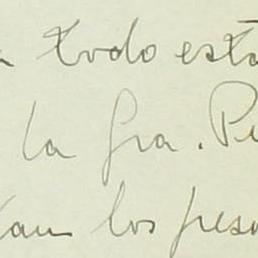 todo está
la Sra. Pe
los pesa